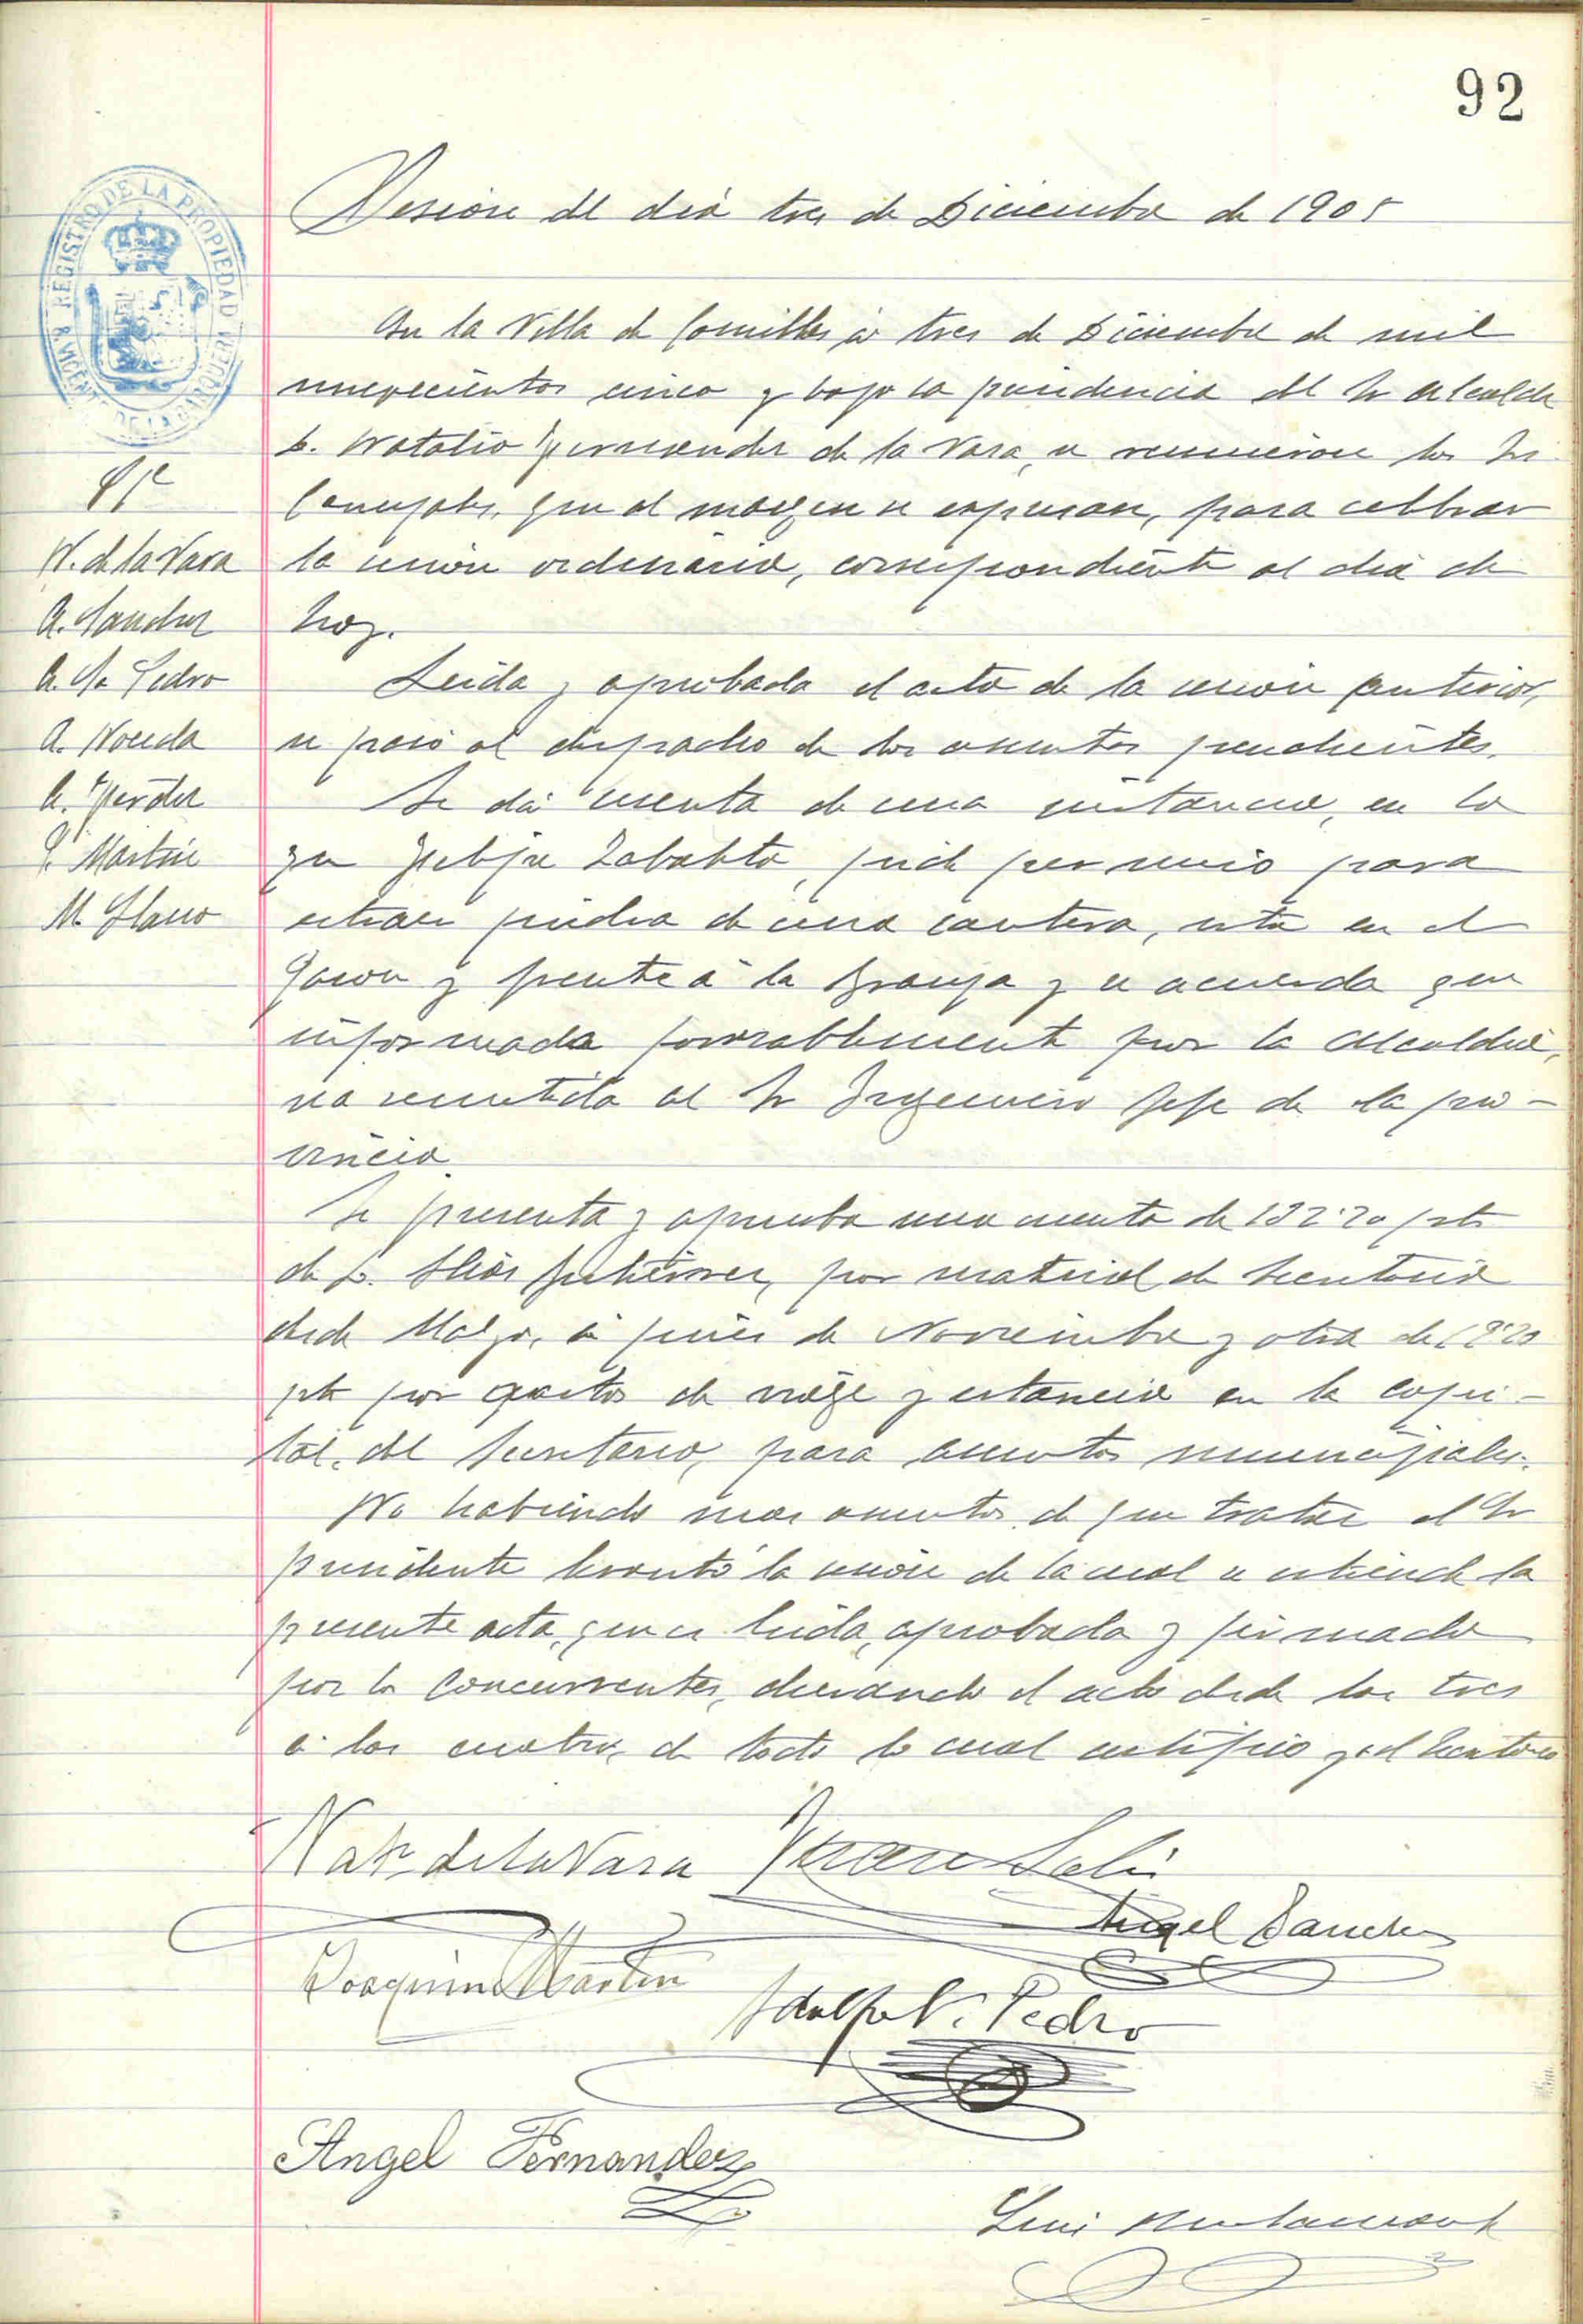 92
Sesión del día tres de Diciembre de 1905
REGISTRO DE LA PROPIEDAD
S. VICENTE DE LA BARQUERA
En la Villa de Comillas á tres de Diciembre de mil
novecientos cinco y bajo la presidencia del Sr Alcalde
D. Natalio Fernandez de la Vara, se reunieron los Srs
Concejales, que al margen se expresan, para celebrar
la sesión ordinaria, correspondiente al día de
hoy.
Srs
N. de la Vara
A. Sanchez
A. Sn Pedro
A. Noceda
A. Ferndez
J. Martin
M. Llano
Leida y aprobada el acta de la sesión anterior,
se pasó al despacho de los asuntos pendientes.
Se dá cuenta de una instancia, en la
que Felipe, pide permiso para
extraer piedra de una cantera, sita en el
y frente á la Granja y se acuerda que
informada favorablemente por la Alcaldia,
sea remitida al Sr Ingeniero Jefe de la pro-
vincia.
Se presenta y aprueba una cuenta de pts
de D. Gutierrez, por material de Secretaria
desde á fines de Noviembre y otra de
pts por gastos de viaje y estancia en la capi-
tal, del Secretario, para asuntos municipales.
No habiendo mas asuntos de que tratar el Sr
presidente levantó la sesión de la cual se extiende la
presente acta, que es leida, aprobada y firmada
por los concurrentes, durando el acto desde las tres
á las cuatro, de todo lo cual certifico yo el Secretario
Nat. de la Vara
Angel Sanchez
Joaquin Martin
Adolfo S. Pedro
Angel Fernandez